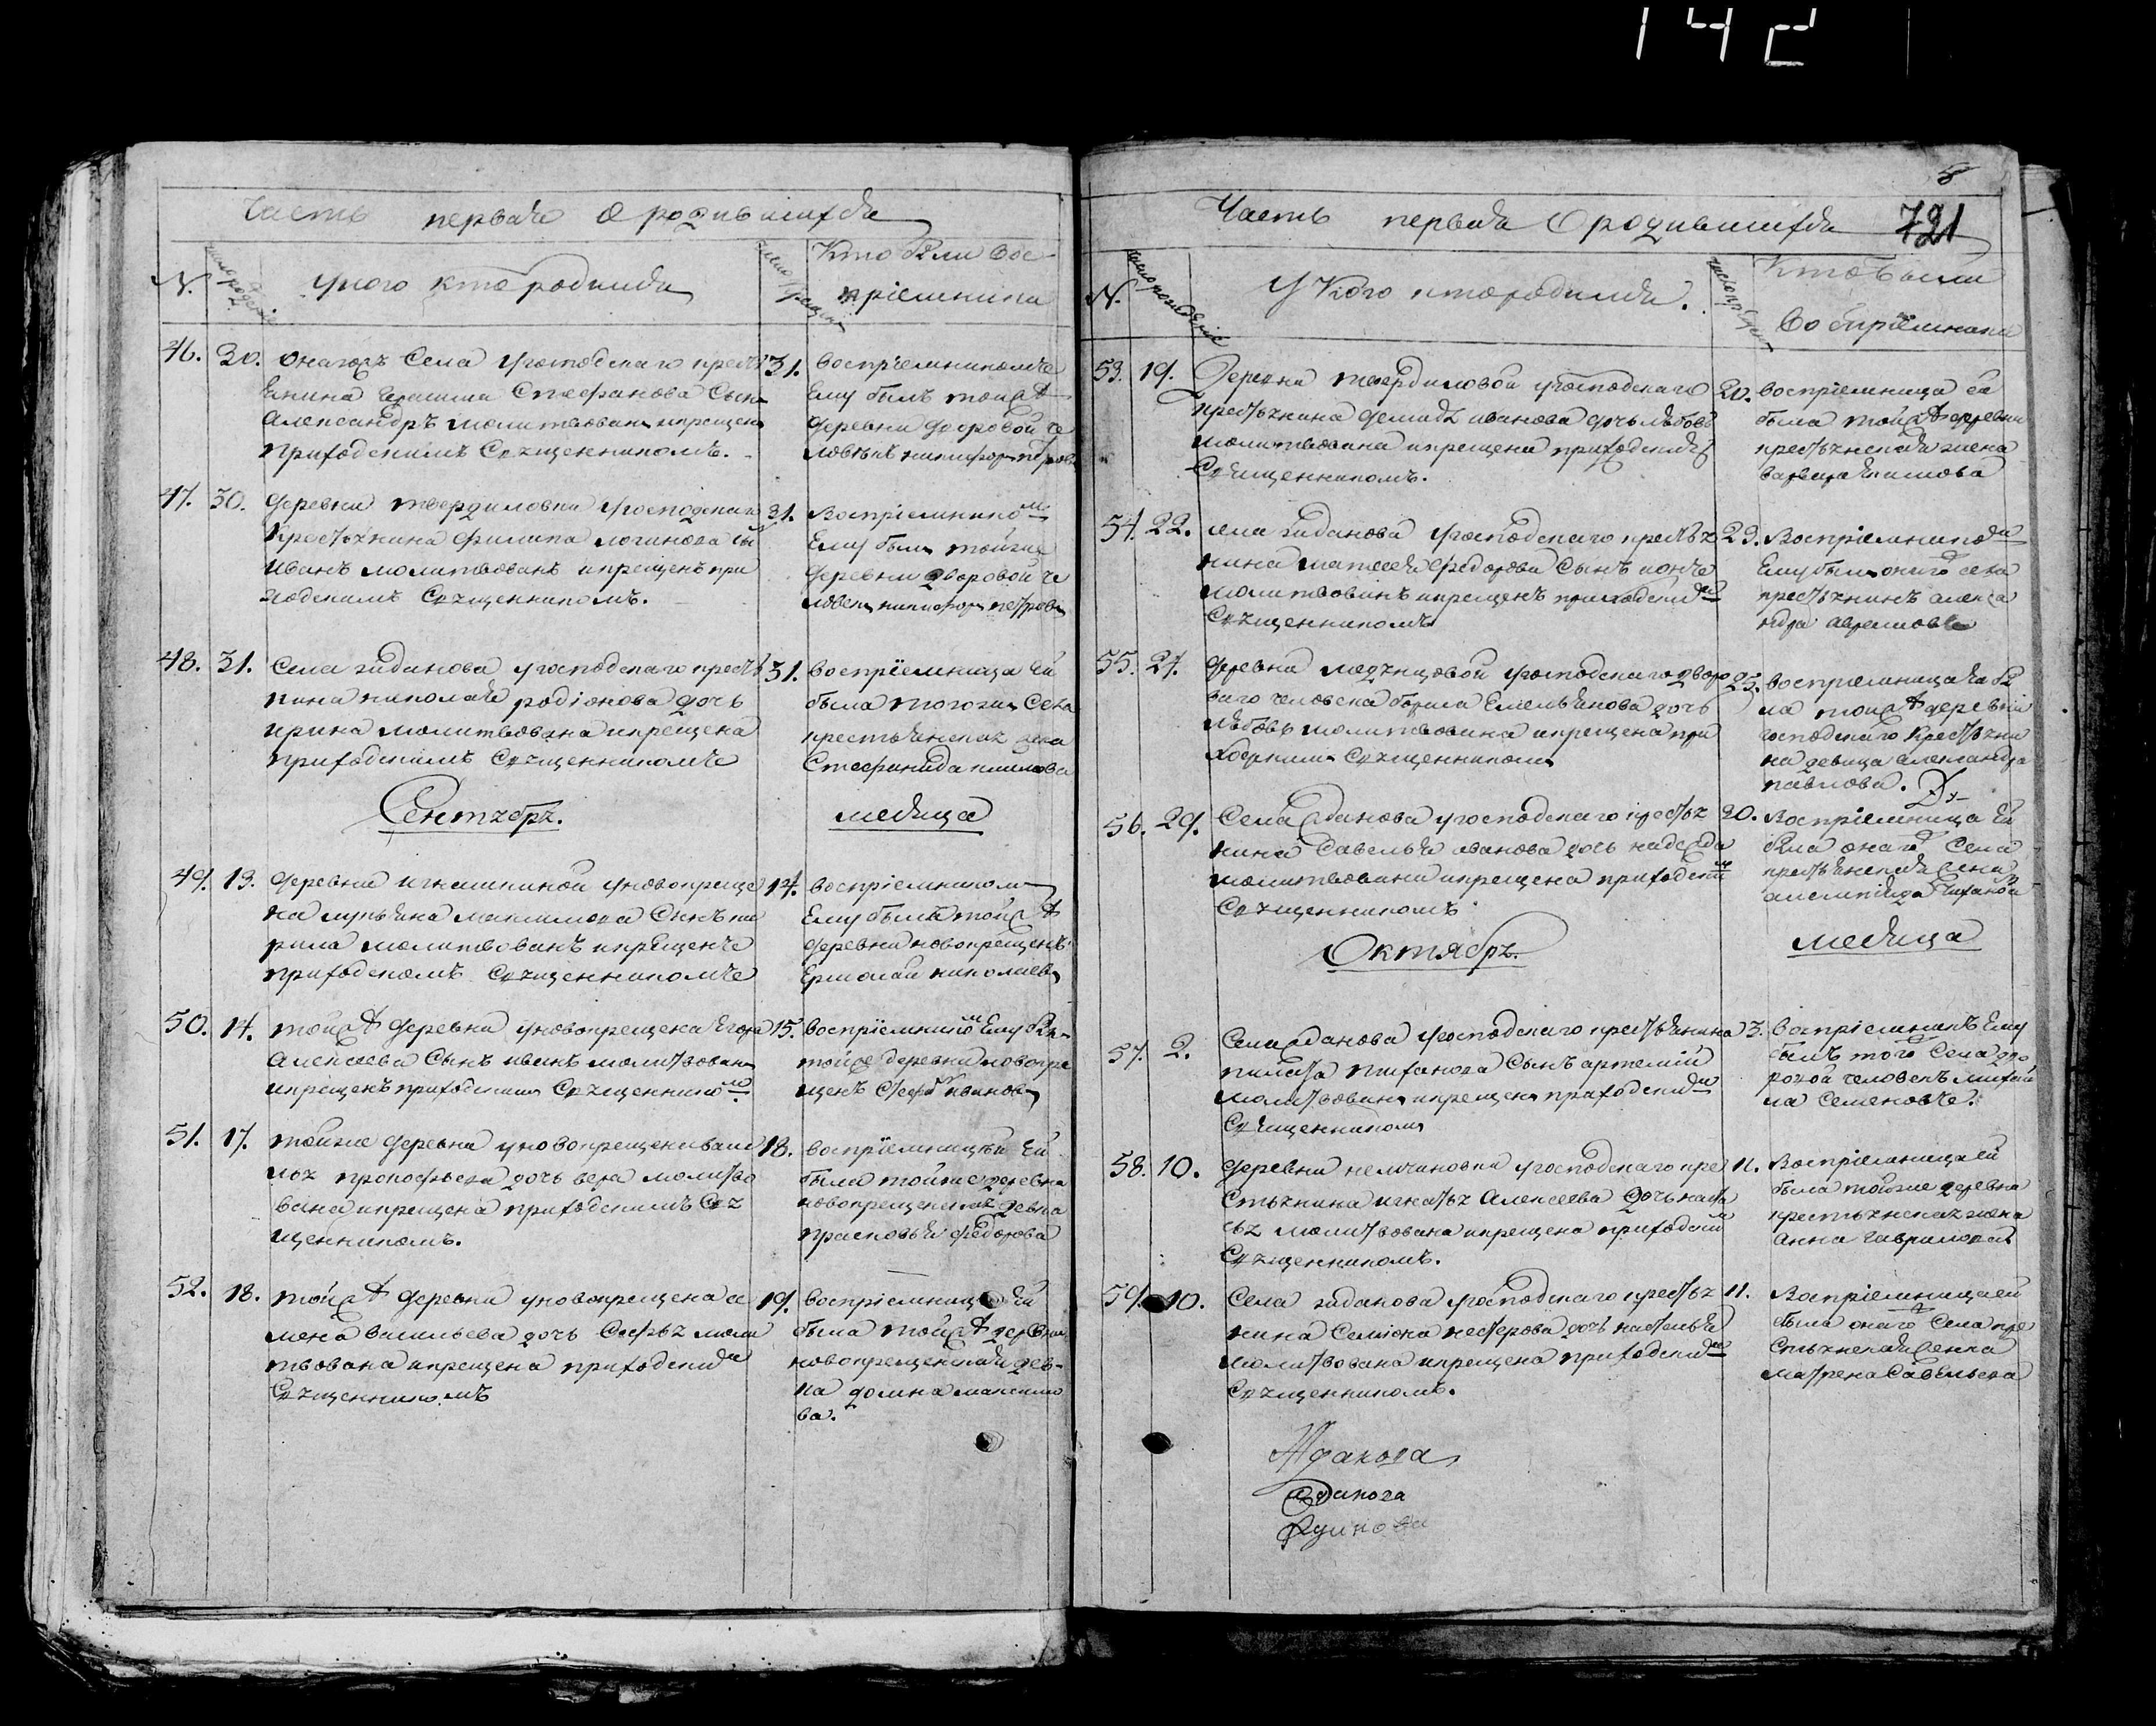 142
Часть первая О родившихся
N.
число рождения
У кого кто родился
Кто были вос
приемники
46. 30. Онагожъ села у господскаго кресть
янина Стефанова сынъ
Александръ молитвованъ икрещенъ
приходскимъ Священникомъ.
31. восприемникомъ
ему былъ тойжъ
деревни дворовой че
ловѣкъ никифоръ петровъ
47. 30. деревни твердиловки угосподскаго
крестьянина филипа логинова сы
иванъ молитвованъ икрещенъ при
ходскимъ Священникомъ.
31. Восприемникомъ
ему былъ тойже
деревни дворовой че
ловекъ никифоръ петровъ
48. 31. Села жданова угосподскаго кресть
нина николая родіонова дочь
ирина молитвована икрещена
приходскимъ Священникомъ
31. восприемница ей
была тогожъ села
крестьянская жена
Стефанида
Сентябрь.
месяца
49. 13. деревни игнашкиной уновокреще
на лукьяна максимова сынъ ки
рила молитвованъ икрещенъ
приходскомъ Священникомъ
14. восприемникомъ
ему былъ тойжъ
деревни новокрещенъ
Ермолай николаевъ
50. 14. тойжъ деревни уновокрещена Егора
Алексеева Сынъ иванъ молитвованъ
икрещенъ приходскимъ Священникомъ.
15. восприемникомъ ему бы
тойже деревни новокре
щенъ Стефанъ ивановъ
51. 17. тойже деревни уновокрещена васи
лья прокофьева дочь вера молитво
вана икрещена приходскимъ Свя
щенникомъ.
18. восприемницей ей
была тойже деревни
новокрещенская девка
прасковья федорова
52. 18. тойжъ деревни уновокрещена се
мена васильева дочь софья моли
твована икрещена приходскимъ
Священникомъ
19. восприемница ей
была тойжъ деревни
новокрещенская дев-
ка домна максимо
ва.
8
721
Часть первая О родившихся
N.
число рождение
У Кого кто родился.
Кто были
Восприемники
53. 19. Деревни твердиловой угосподскаго
крестьянина демида иванова дочь любовь
молитвована икрещена приходскимъ
Священникомъ.
20. восприемница ей
была тойжъ деревни
крестьянская жена
варвара Екимова
54. 22. села жданова угосподскаго крестья
нина матвея федорова сынъ
молитвованъ икрещенъ приходскимъ
Священникомъ
23. Восприемникомъ
ему былъ онаго села
крестьянинъ алекса
ндра
55. 24. деревни угосподскаго дворо
ваго человека Емельянова дочь
любовь молитвована икрещена при
ходскимъ Священникомъ
25. восприемница ея бы
ла тойжъ деревни
господскаго крестьяни
на девица александра
павлова.
56. 29. Села жданова угосподскаго крестья
нина Савелья иванова дочь надежда
молитвована икрещена приходским
Священникомъ
30. восприемница ей
была онаго Села
крестьянская жена
Октябрь.
месяца
57. 2. Села жданова угосподскаго крестьянина
Сынъ артемий
молитвованъ икрещенъ приходским
Священникомъ
3. восприемникъ ему
былъ того Села дво
ровой человекъ михай
ла Семеновъ.
58. 10. деревни немчиновки угосподскаго кре
стьянина игнатья Алексеева дочь наста
сья молитвована икрещена приходским
Священникомъ.
11. Восприемница ей
была тойже деревни
крестьянская жена
Анна гаврилова
59. 10. Села жданова угосподскаго крестья
нина Семіона нестерова дочь настасья
молитвована икрещена приходским
Священникомъ.
11. Восприемница ей
была онаго Села кре
стьянская женка
матрена Савельева
Жданова
жданова